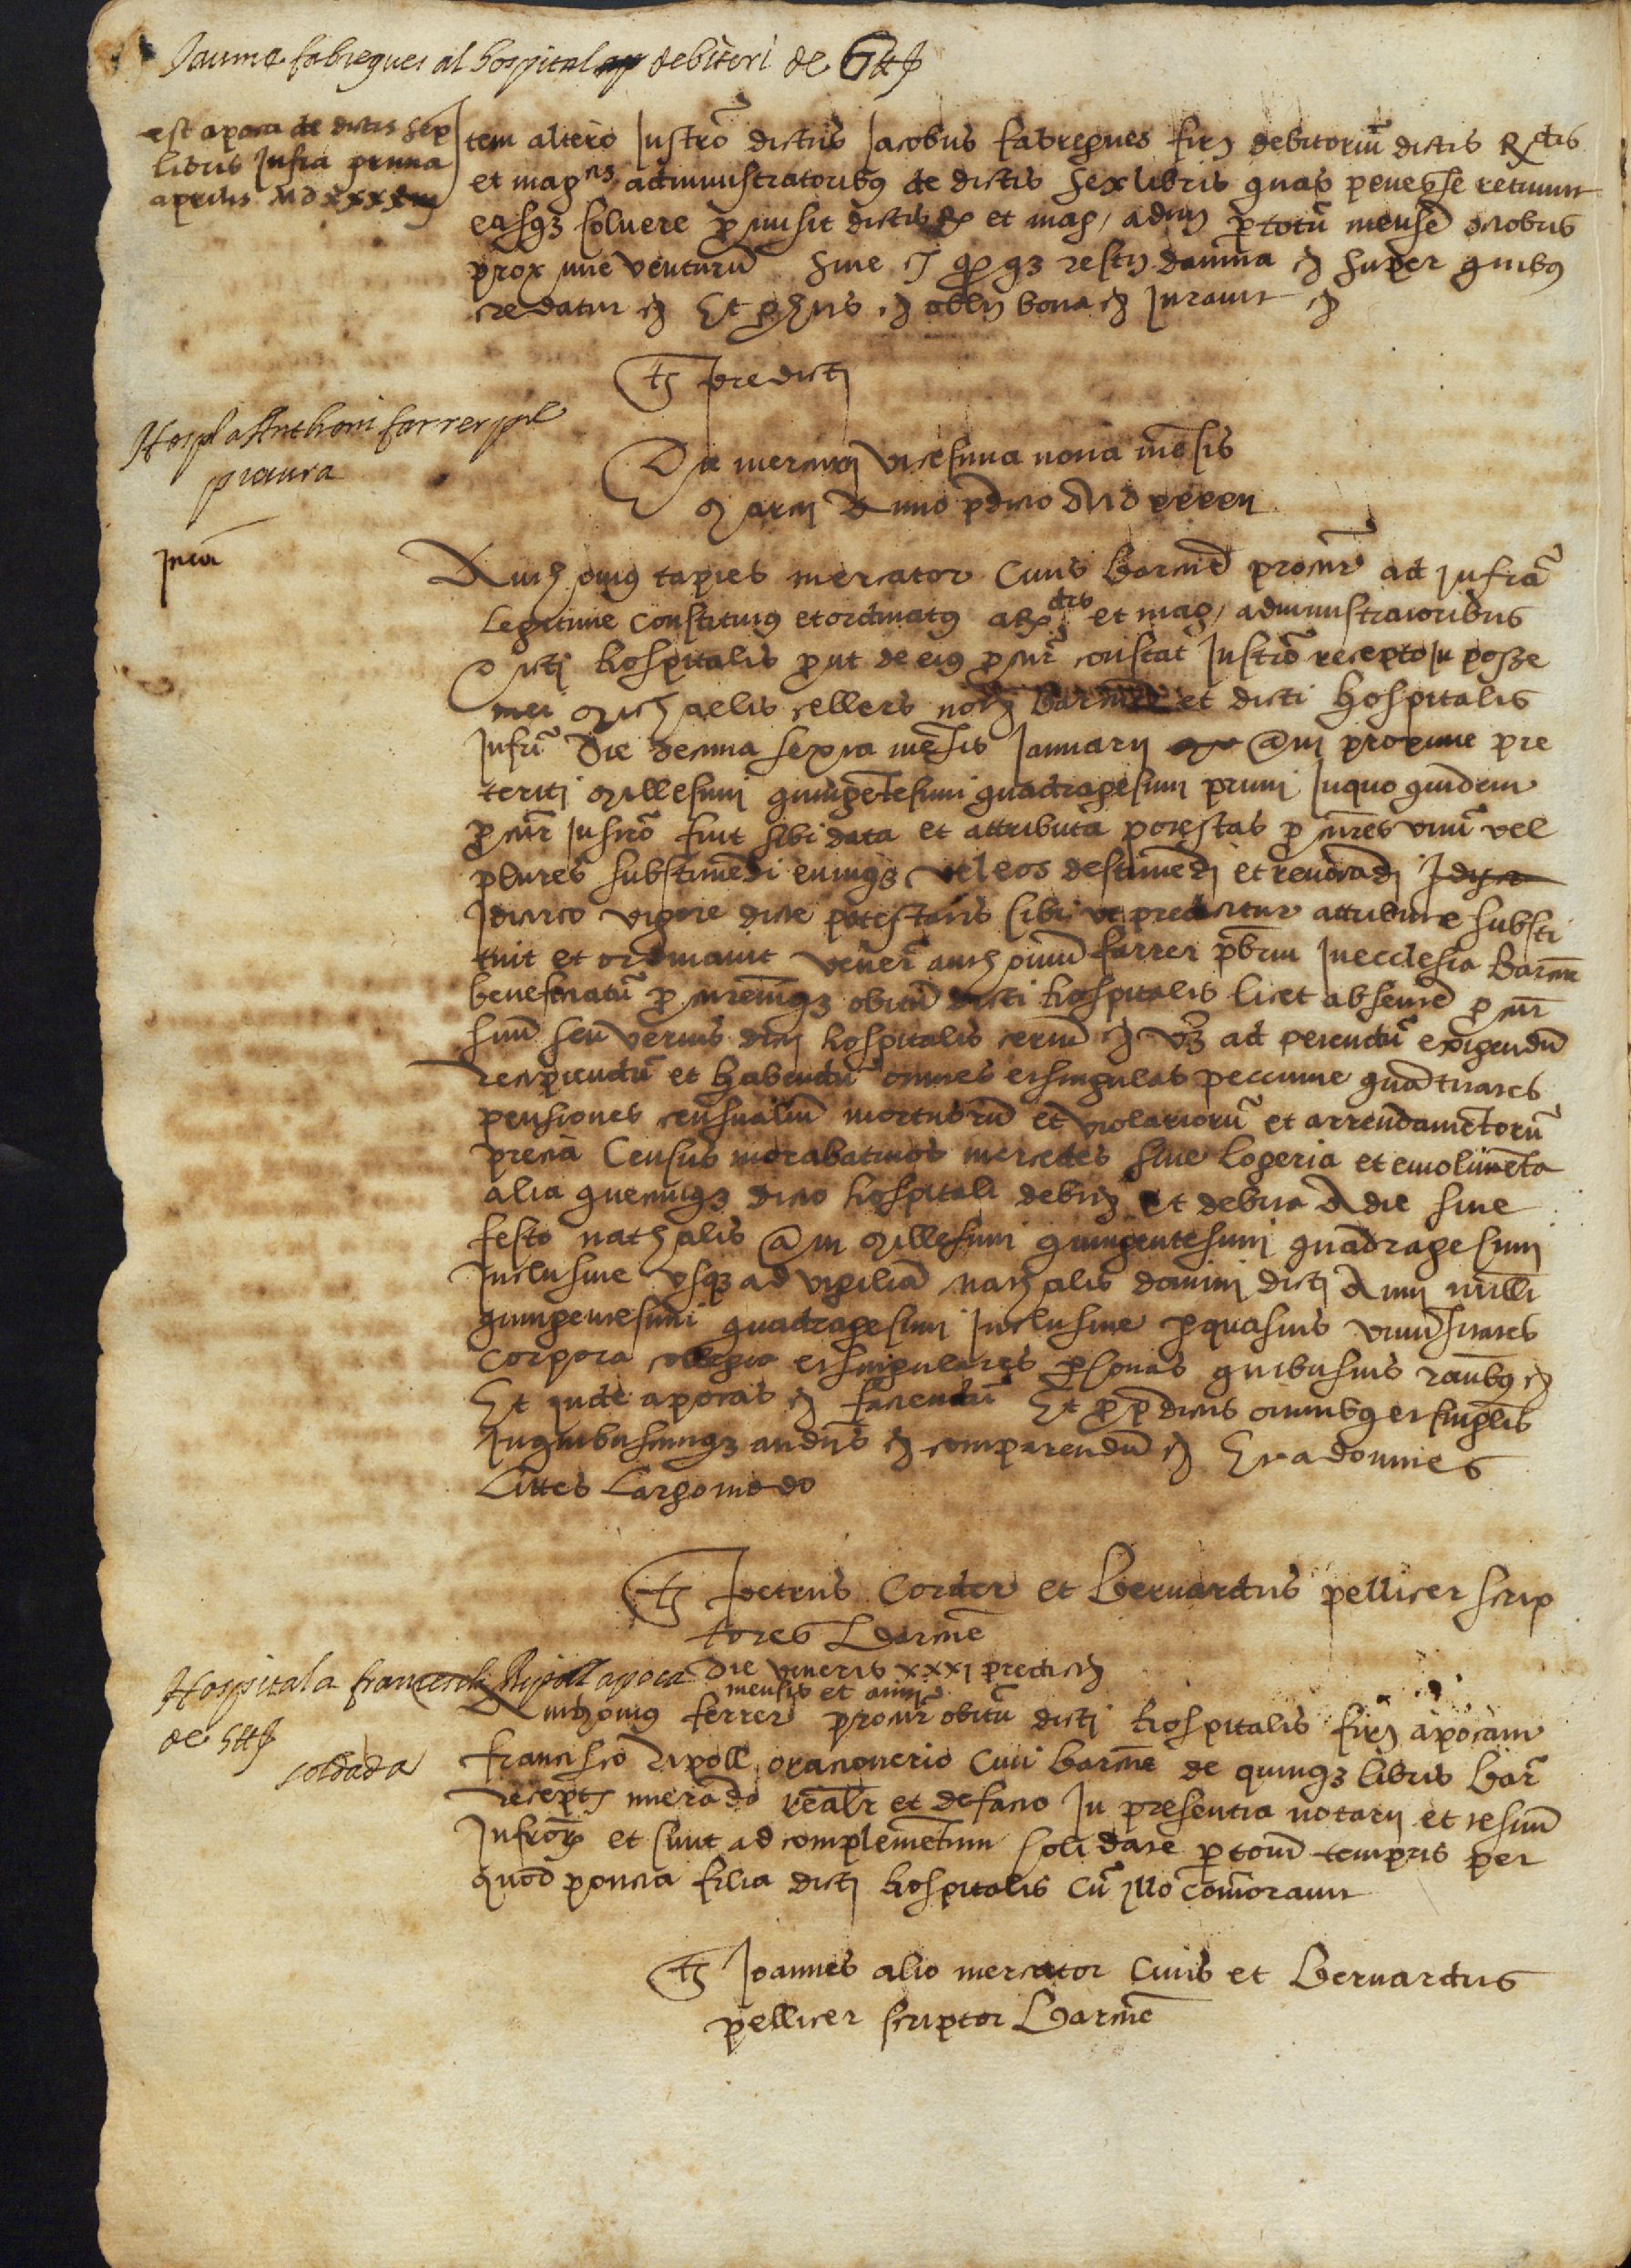 Jaume fabregues al hospital debitori de 6 ll
est apoca de dictis sex
libris Infra prima
aprilis MDxxxxiii
Item altero Instro dictus Jacobus fabregues fir debitoriu dictis Rdis
et magcis administratoribus de dictis sex libris quas penes se retinuit
easqz solvere promisit dictis R et mag, adm per totu mense octobris
proxime venturu sine resti damna et super quibus
credatur et Et pro his et obli bona et Juravit et
ts predicti
Hospl a Anthoni farrer pre
procura
Die mercurii vicesima nona mesis
marcii Anno pdicto MD xxxxii
Jnca
Anthonius tapies mercator Civis barcine procur ad infra
Legitime constitutus et ordinatus a Rdis et mag, administratoribus
Dicti hospitalis prout de eius procur constat Instro recepto in posse
mei Michaelis cellers not barcine et dicti hospitalis
Infr Die decima sexta mesis Januarii Anni proxime pre
teriti Millesimi quingetesimi quadragesimi primi In quo quidem
procur Instro fuit sibi data et attributa potestas procures unu vel
plures substituedi eumqz vel eos destituedi et revocadi
Idcirco vigore dicte potestatis sibi ut predicitur attribute substi
tuit et ordinavit vener anthoniu farrer pbrm In ecclesia Barcine
beneficiatu procuremqz obituu dicti hospitalis licet absente procur
suu seu verius dicti hospitalis certu et vz ad petendu exigendu
Recipiendu et habendu omnes et singulas peccunie quatitates
pensiones censualiu mortuoru et violarioru et arrendametoru
precia Census morabatinos mercedes sive logeria et emolumeta
alia quecumqz dicto hospitali debit et debita A die sive
festo nathalis Anni Millesimi quingentesimi quadragesimi
Inclusive usqz ad vigilia nathalis domini dicti Anni milli
quingentesimi quadragesimi Inclusive per quasvis universitates
Corpora collegia et singulares personas quibusvis raonibus et
Et inde apocas et faciendu Et pro pdictis omnibus et singulis
In quibuscumqz curiis et comparendu et Et ad omnes
Littes Largo modo
ts Petrus Corder et Bernardus pellicer scrip
tores Barcine
Hospital a francesch Ripoll apoca
de 5 ll
soldada
Die veneris xxxi predicti
mensis et anni
Anthonius ferrer procur obituu dicti hospitalis fir apocam
francisco Ripoll oracionerio Civi barcine de quinqz libris bar
recept numerado realr et de facto In presentia notarii et testiu
Infror et sunt ad complemetum solidate per totu tempus per
quod poncia filia dicti hospitalis cu illo comoravit
ts Joannes alio mercator Civis et Bernardus
pellicer scriptor Barcine